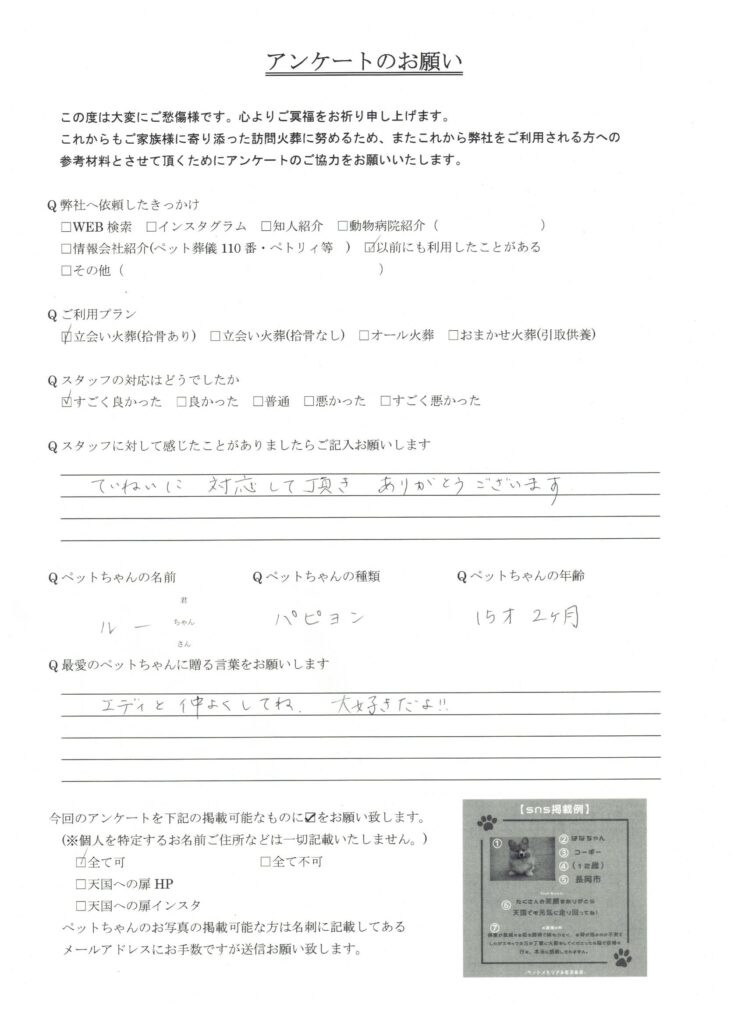 アンケートのお願い
この度は大変にご愁傷様です。心よりご冥福をお祈り申し上げます。
これからもご家族様に寄り添った訪問火葬に努めるため、またこれから弊社をご利用される方への
参考材料とさせて頂くためにアンケートのご協力をお願いいたします。
Q 弊社へ依頼したきっかけ
□WEB 検索 □インスタグラム □知人紹介 □動物病院紹介（ ）
□情報会社紹介(ペット葬儀 110 番・ペトリィ等 ) ☑以前にも利用したことがある
□その他（ ）
Q ご利用プラン
☑立会い火葬(拾骨あり) □立会い火葬(拾骨なし) □オール火葬 □おまかせ火葬(引取供養)
Q スタッフの対応はどうでしたか
☑すごく良かった □良かった □普通 □悪かった □すごく悪かった
Q スタッフに対して感じたことがありましたらご記入お願いします
ていねいに 対応して頂き ありがとうございます
Q ペットちゃんの名前 Q ペットちゃんの種類 Q ペットちゃんの年齢
君
ルー ちゃん パピヨン 15才 2ヶ月
さん
Q 最愛のペットちゃんに贈る言葉をお願いします
エディと仲よくしてね. 大好きだよ!!
今回のアンケートを下記の掲載可能なものに☑をお願い致します。
(※個人を特定するお名前ご住所などは一切記載いたしません。)
☑全て可 □全て不可
□天国への扉 HP
□天国への扉インスタ
ペットちゃんのお写真の掲載可能な方は名刺に記載してある
メールアドレスにお手数ですが送信お願い致します。
【sns掲載例】
① ② はなちゃん
③ コーギー
④ (12歳)
⑤ 長岡市
⑥ たくさんの笑顔をありがとう
天国でも元気に走り回ってね!
⑦